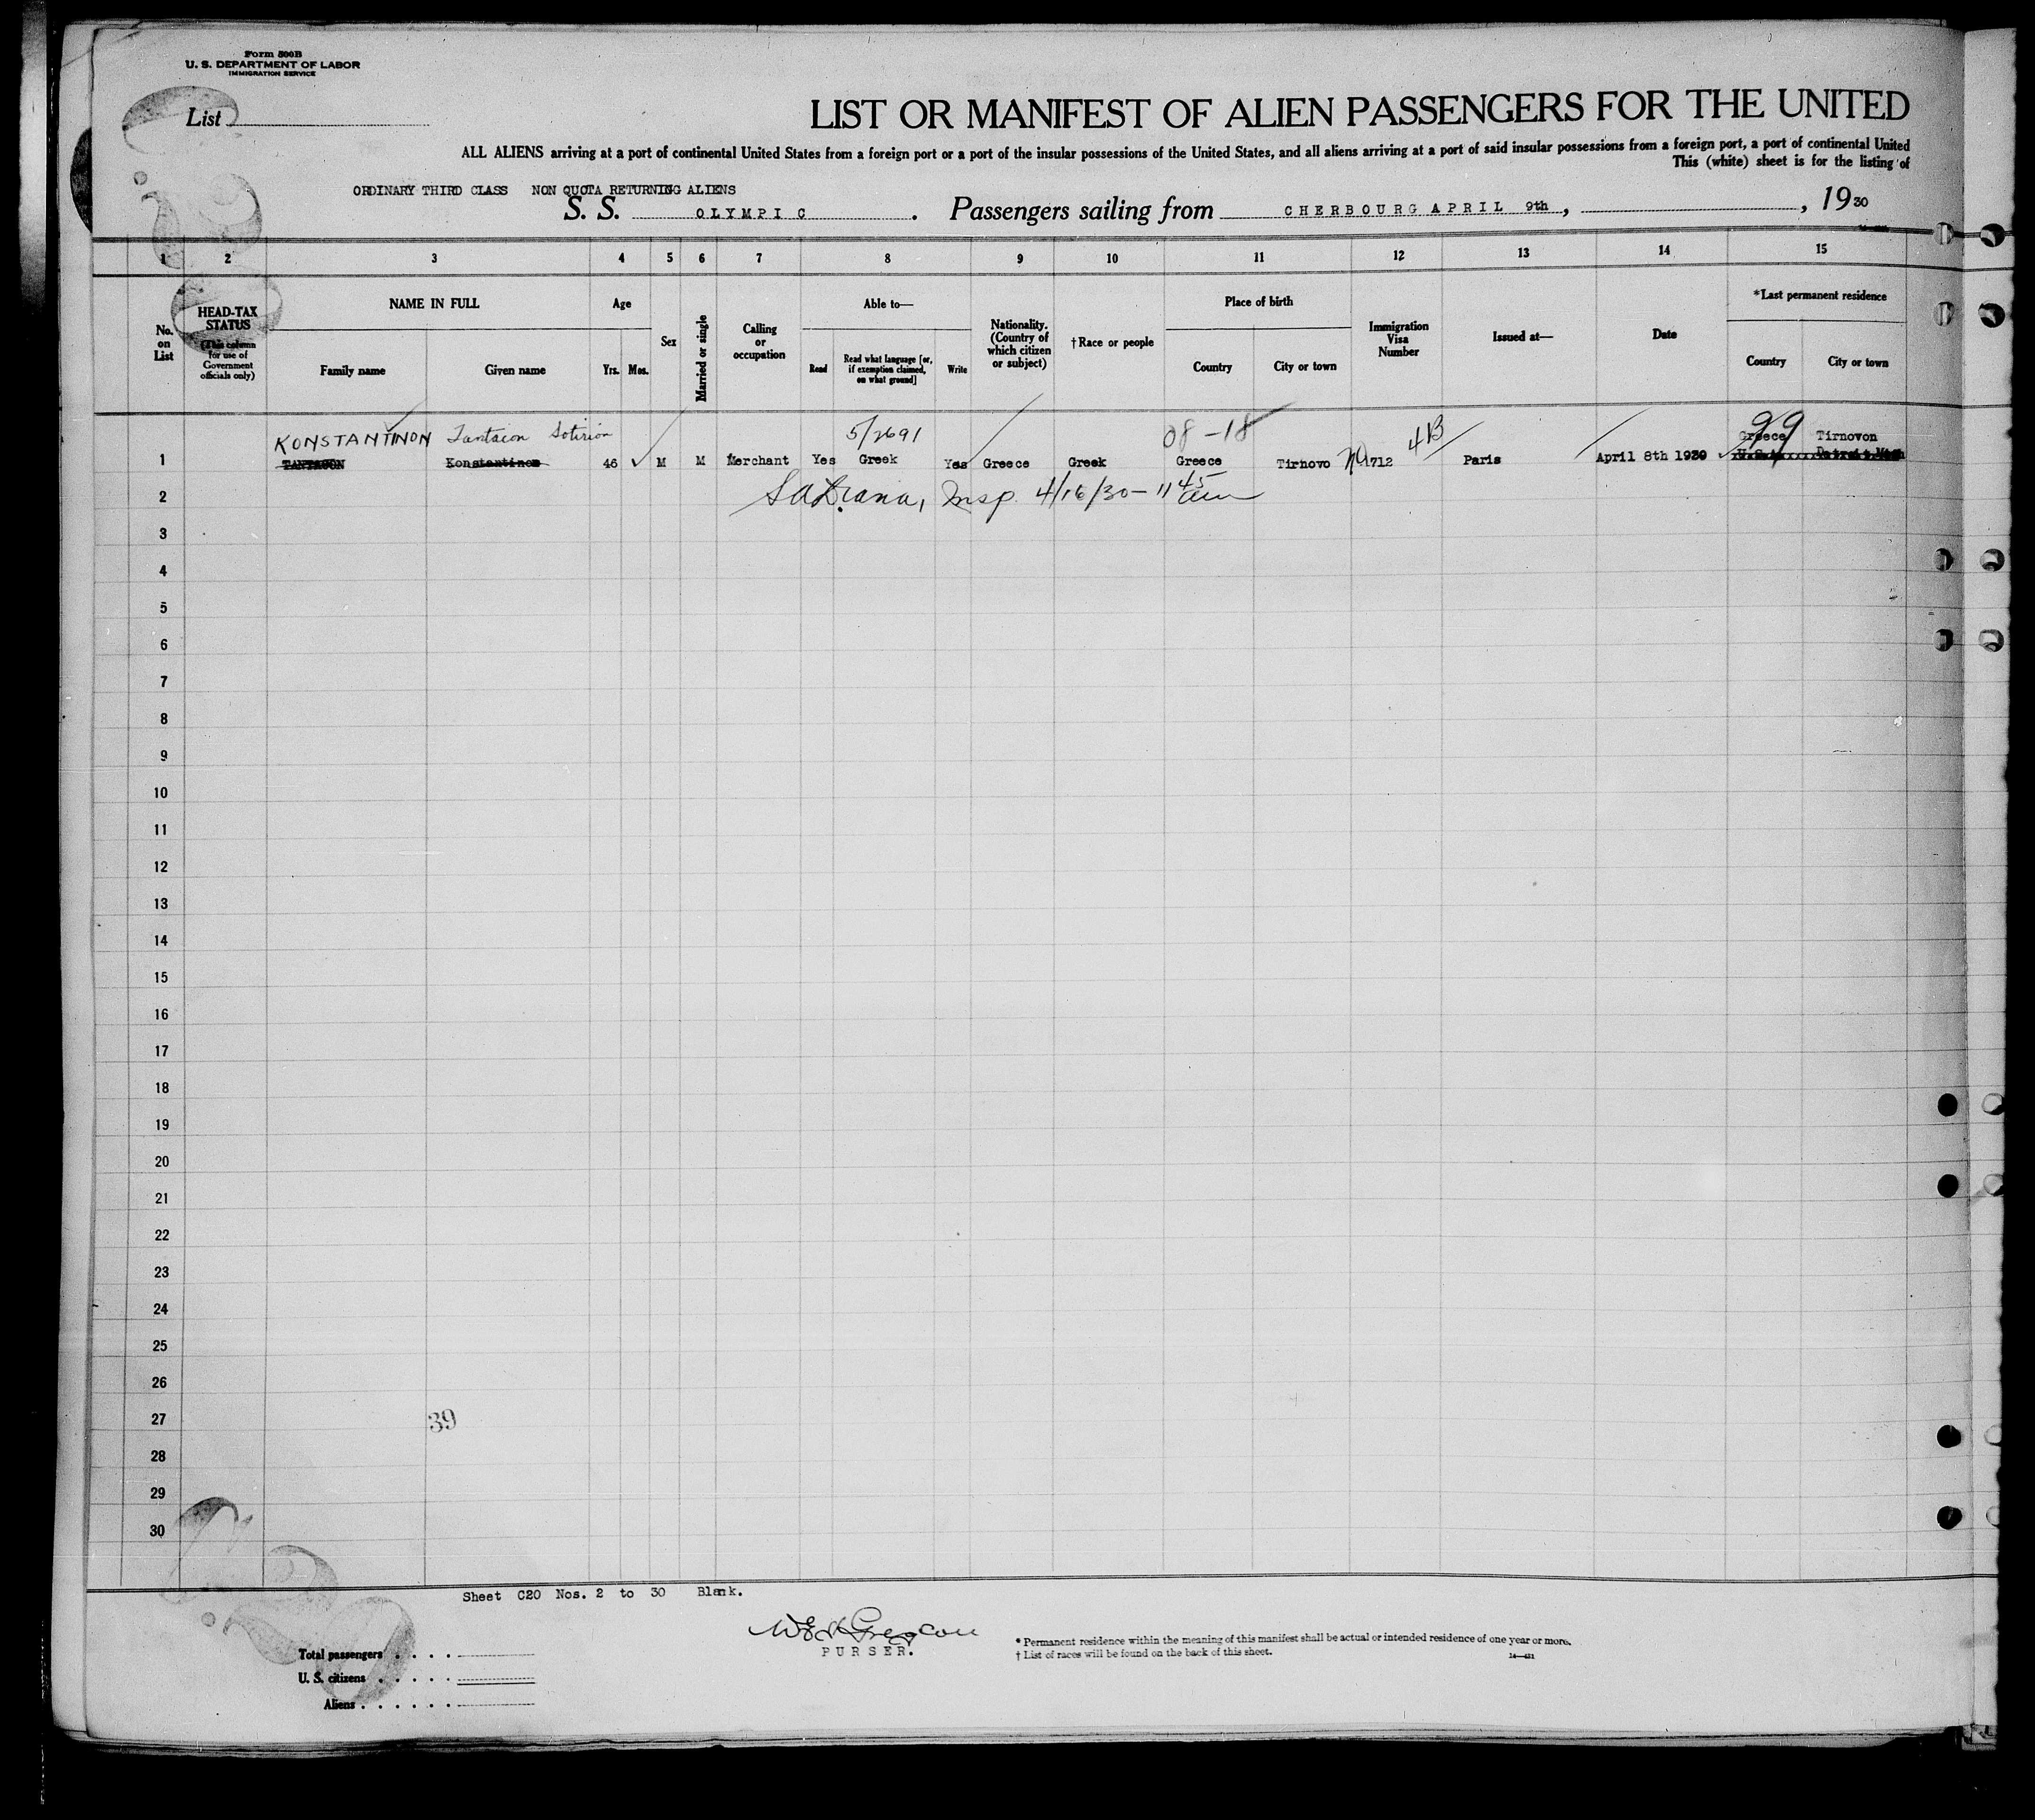 Form 500B
U. S. DEPARTMENT OF LABOR
IMMIGRATION SERVICE
List
LIST OR MANIFEST OF ALIEN PASSENGERS FOR THE UNITED
ALL ALIENS arriving at a port of continental United States from a foreign port or a port of the insular possessions of the United States, and all aliens arriving at a port of said insular possessions from a foreign port, a port of continental United
This (white) sheet is for the listing of
ORDINARY THIRD CLASS NON QUOTA RETURNING ALIENS
S. S. OLYMPIC . Passengers sailing from CHERBOURG APRIL 9th, , 1930
1 2 3 4 5 6 7 8 9 10 11 12 13 14 15
No. on List
HEAD-TAX STATUS
(This column for use of Government officials only)
NAME IN FULL
Family name
Given name
Age
Yrs. Mos.
Sex
Married or single
Calling or occupation
Able to—
Read
Read what language [or, if exemption claimed, on what ground]
Write
Nationality. (Country of which citizen or subject)
†Race or people
Place of birth
Country
City or town
Immigration Visa Number
Issued at—
Date
*Last permanent residence
Country
City or town
KONSTANTINON Tantaion Sotirion 5/2691 08-18 4B 99 Greece Tirnovon
1 Konstantinon 46 M M Merchant Yes Greek Yes Greece Greek Greece Tirnovo 1712 Paris April 8th 1930
2 Insp. 4/16/30 - 11 45 am
3
4
5
6
7
8
9
10
11
12
13
14
15
16
17
18
19
20
21
22
23
24
25
26
27
39
28
29
30
Sheet C20 Nos. 2 to 30 Blank.
PURSER.
* Permanent residence within the meaning of this manifest shall be actual or intended residence of one year or more.
† List of races will be found on the back of this sheet.
Total passengers
U. S. citizens
Aliens